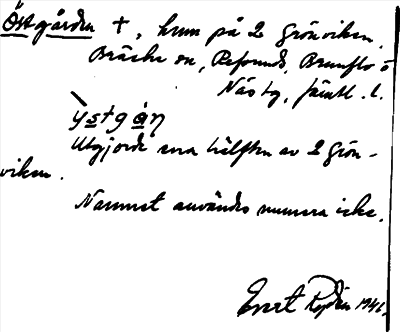 Östgården +, hem på 2 Grönviken,
Bräcke sn, Refsunds, Brunflo o
Näs tg, Jämtl. l.
ỳstgàṇ
Utgjorde ena hälften av 2 Grön-
viken.
Namnet användes numera icke.
Evert Rydén 1941.